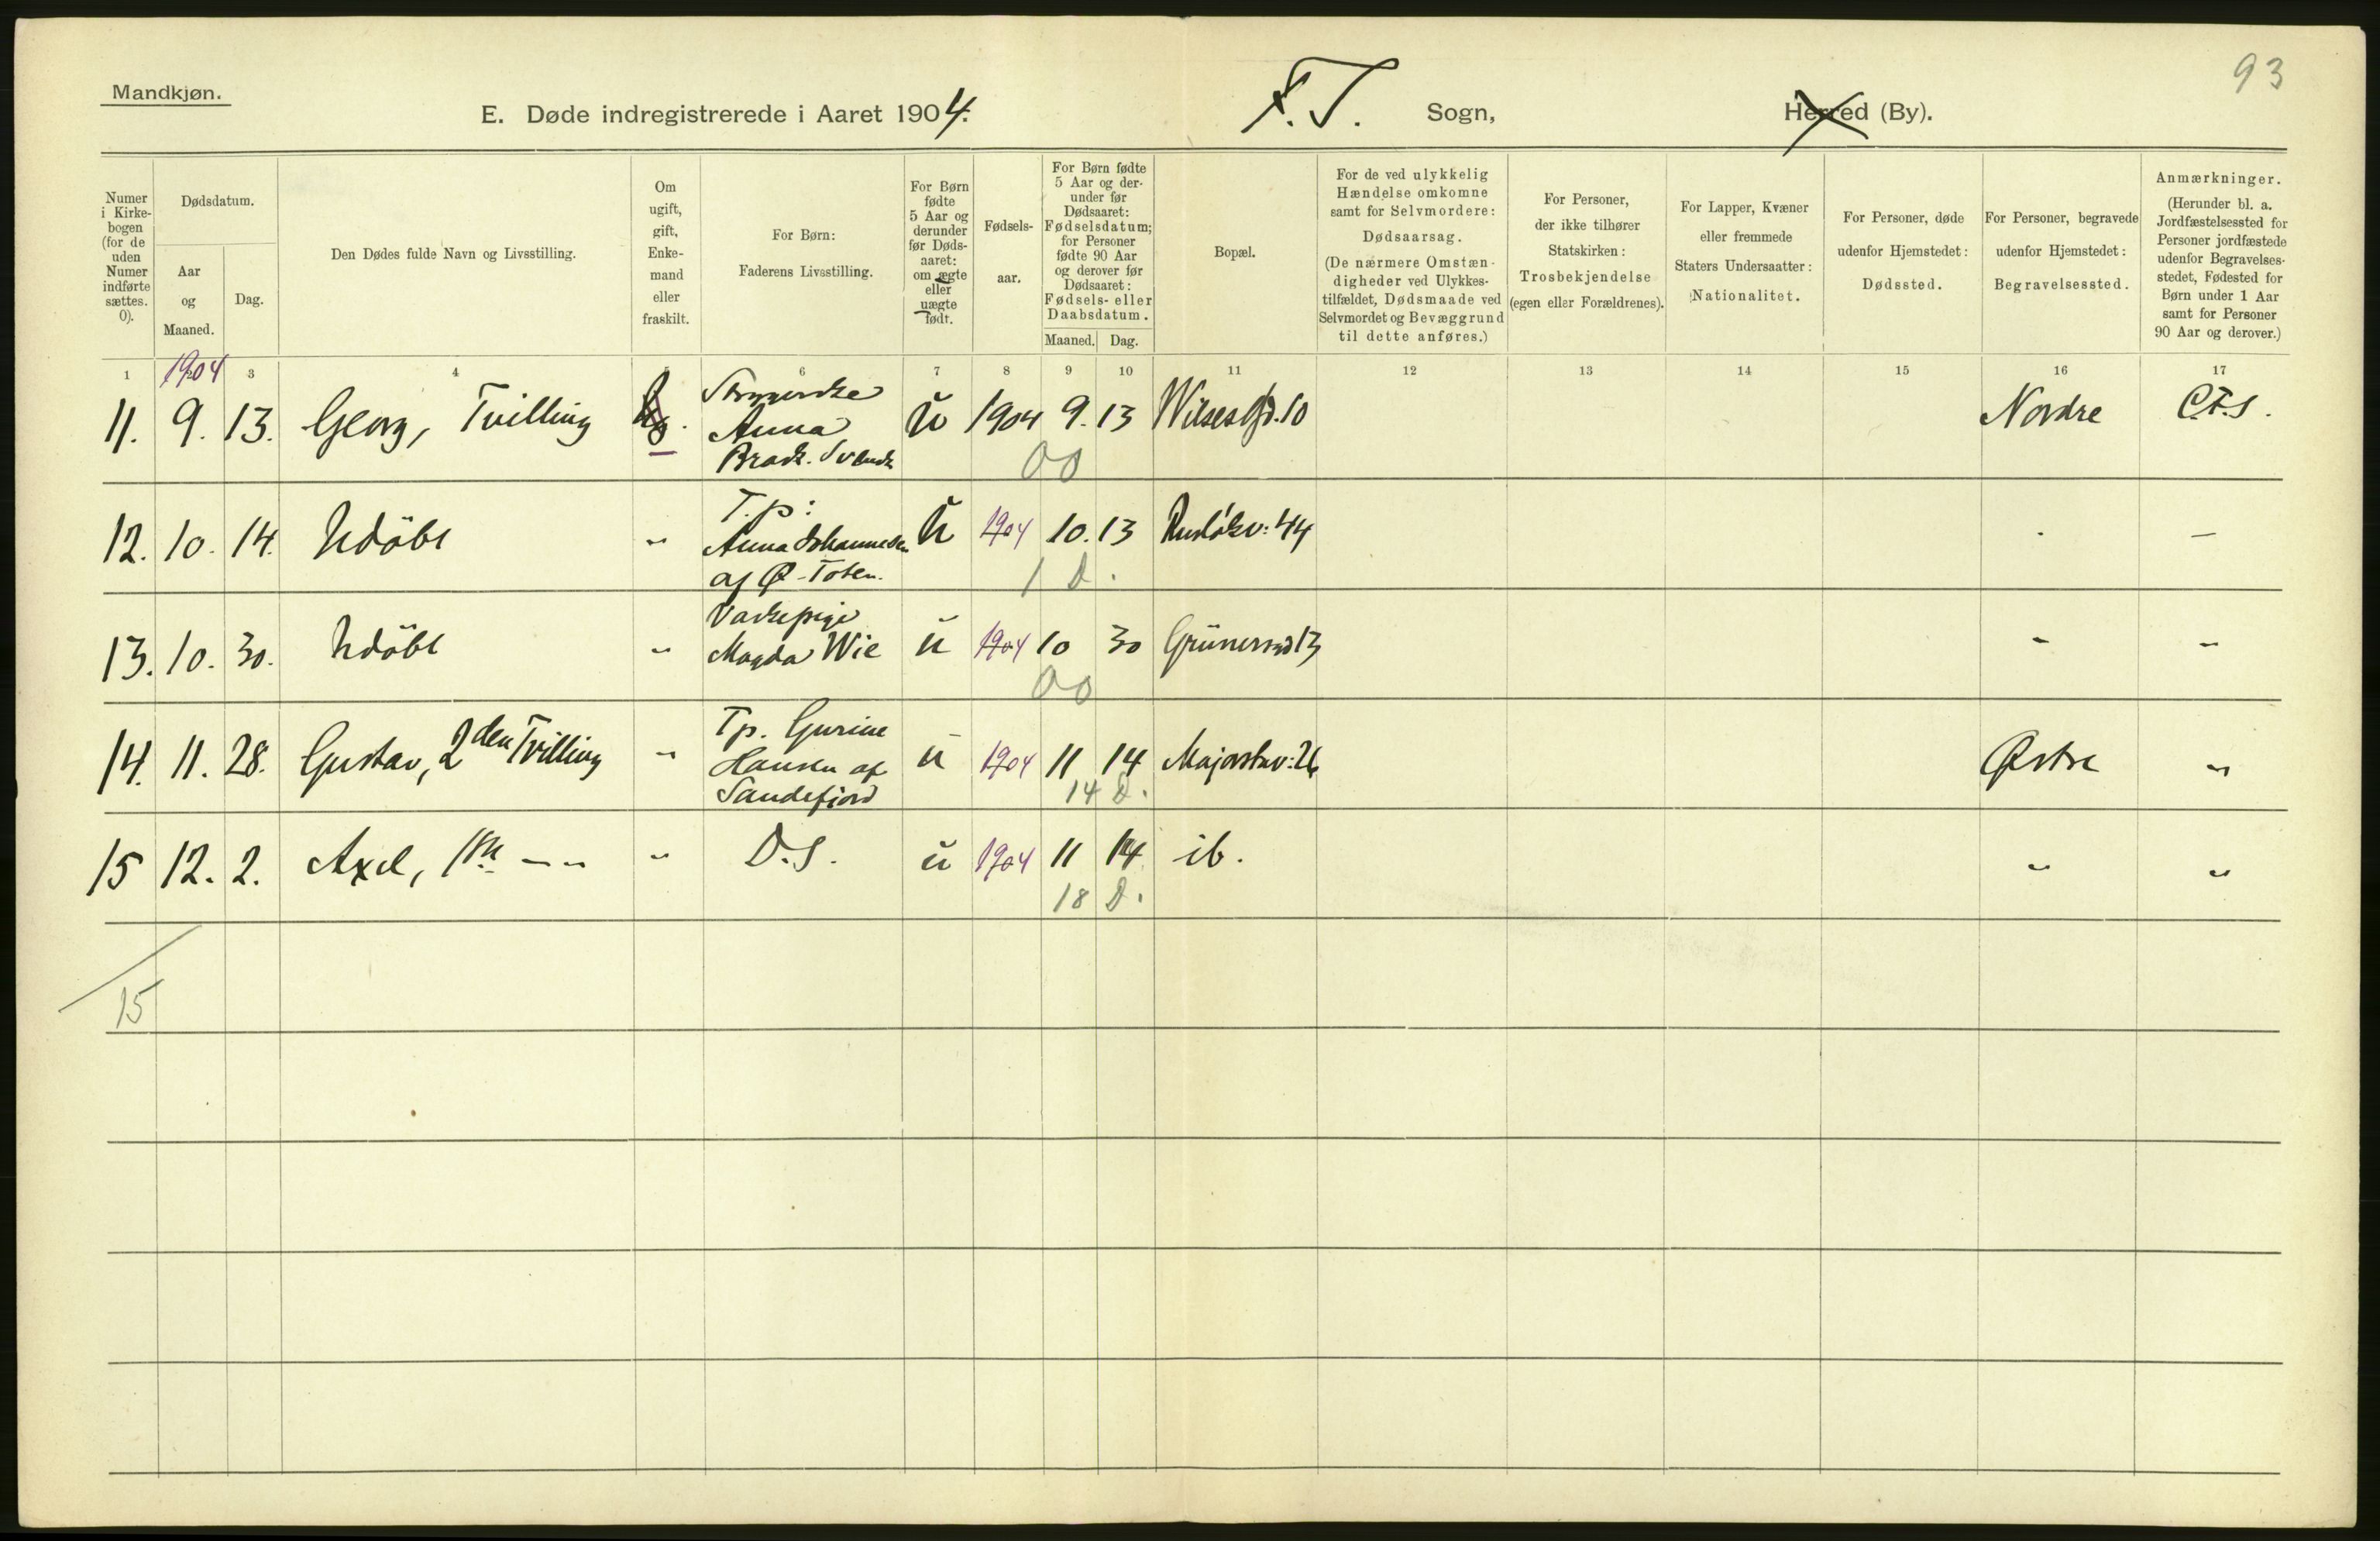 93
Mandkjøn.
E. Døde indregistrerede i Aaret 1904. F. T. Sogn, Herred (By).
Numer i Kirke-bogen (for de uden Numer indførte sættes. 0).
Dødsdatum.
Aar og Maaned.
Dag.
Den Dødes fulde Navn og Livsstilling.
Om ugift, gift, Enke-mand eller fraskilt.
For Børn: Faderens Livsstilling.
For Børn fødte 5 Aar og derunder før Døds-aaret: om ægte eller uægte født.
Fødsels-aar.
For Børn fødte 5 Aar og der-under før Dødsaaret: Fødselsdatum; for Personer fødte 90 Aar og derover før Dødsaaret: Fødsels- eller Daabsdatum.
Maaned. Dag.
Bopæl.
For de ved ulykkelig Hændelse omkomne samt for Selvmordere: Dødsaarsag. (De nærmere Omstæn-digheder ved Ulykkes-tilfældet, Dødsmaade ved Selvmordet og Bevæggrund til dette anføres.)
For Personer, der ikke tilhører Statskirken: Trosbekjendelse (egen eller Forældrenes).
For Lapper, Kvæner eller fremmede Staters Undersaatter: Nationalitet.
For Personer, døde udenfor Hjemstedet: Dødssted.
For Personer, begravede udenfor Hjemstedet: Begravelsessted.
Anmærkninger. (Herunder bl. a. Jordfæstelsessted for Personer jordfæstede udenfor Begravelses-stedet, Fødested for Børn under 1 Aar samt for Personer 90 Aar og derover.)
1 1904 3 4 6 7 8 9 10 11 12 13 14 15 16 17
11. 9. 13. Georg, Tvilling Anna u 1904 9. 13 Wilsesgd. 10 Nordre
00
12. 10. 14. Udöbt " T.p: Anna Johannesen af Ø-Toten. u 1904 10. 13 44 - —
1 D.
13. 10. 30. Udöbt " Magda Wie u 1904 10 30 13 - "
00
14. 11. 28. Gustav, 2den Tvilling " Tp. Gurine Hansen af Sandefjord u 1904 11 14 Majorstuv: 26 Østre "
14 D.
15 12. 2. Axel, 1ste — " " D.S. u 1904 11 14 ib. " "
18 D.
15